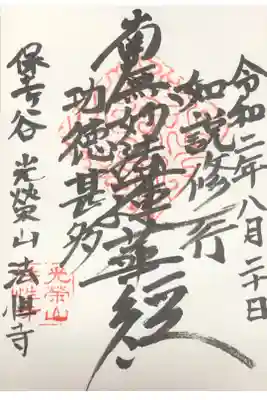 令和二年八月二十日
如説修行
南無妙法蓮華経
功徳甚多
保土谷 光榮山 法性寺
光榮山